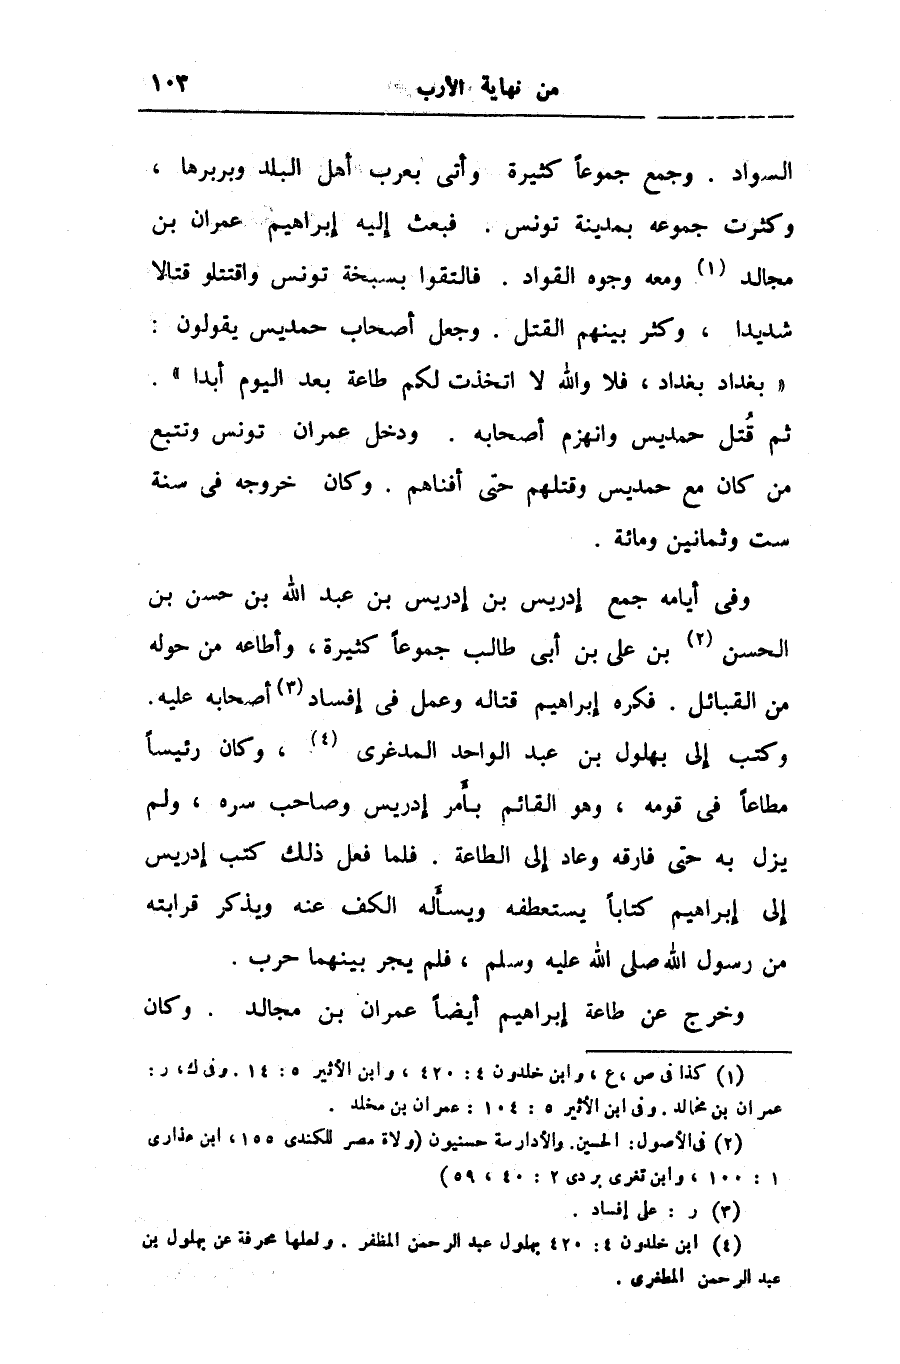 من نهاية الأرب ١٠٣
السواد . وجمع جموعاً كثيرة وأتى بعرب أهل البلد وبربرها ،
وكثرت جموعه بمدينة تونس . فبعث إليه إبراهيم عمران بن
مجالد (١) ومعه وجوه القواد . فالتقوا بسبخة تونس واقتتلو قتالا
شديدا ، وكثر بينهم القتل . وجعل أصحاب حمديس يقولون :
« بغداد بغداد ، فلا والله لا اتخذت لكم طاعة بعد اليوم أبدا » .
ثم قُتل حمديس وانهزم أصحابه . ودخل عمران تونس وتتبع
من كان مع حمديس وقتلهم حتى أفناهم . وكان خروجه فى سنة
ست وثمانين ومائة .
وفى أيامه جمع إدريس بن إدريس بن عبد الله بن حسن بن
الحسن (٢) بن على بن أبى طالب جموعاً كثيرة ، وأطاعه من حوله
من القبائل . فكره إبراهيم قتاله وعمل فى إفساد (٣) أصحابه عليه .
وكتب إلى بهلول بن عبد الواحد المدغرى (٤) ، وكان رئيساً
مطاعاً فى قومه ، وهو القائم بأمر إدريس وصاحب سره ، ولم
يزل به حتى فارقه وعاد إلى الطاعة . فلما فعل ذلك كتب إدريس
إلى إبراهيم كتاباً يستعطفه ويسأله الكف عنه ويذكر قرابته
من رسول الله صلى الله عليه وسلم ، فلم يجر بينهما حرب .
وخرج عن طاعة إبراهيم أيضاً عمران بن مجالد . وكان
(١) كذا فى ص ، ع ، وابن خلدون ٤ : ٤٢٠ ، وابن الأثير ٥ : ١٤ . وفى ك ، ر :
عمران بن مخالد . وفى ابن الأثير ٥ : ١٠٤ : عمران بن مخلد .
(٢) فى الأصول : الحسين . والأدارسة حسنيون (ولاة مصر للكندى ١٥٥ ، ابن عذارى
١ : ١٠٠ ، وابن تغرى بردى ٢ : ٤٠ ، ٥٩)
(٣) ر : على إفساد .
(٤) ابن خلدون ٤ : ٤٢٠ بهلول عبد الرحمن المظفر . ولعلها محرفة عن بهلول بن
عبد الرحمن المطغرى .